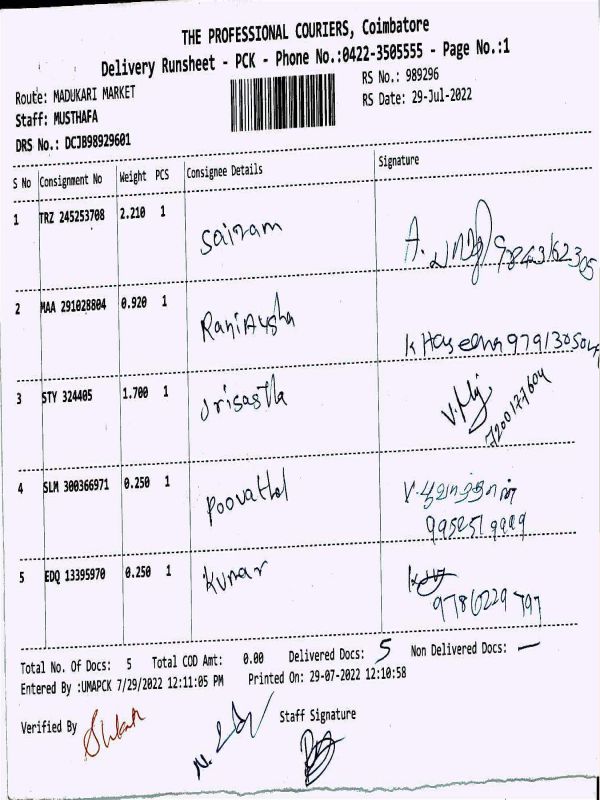 THE PROFESSIONAL COURIERS, Coimbatore
Delivery Runsheet - PCK - Phone No.:0422-3505555 - Page No.:1
Route: MADUKARI MARKET
RS No.: 989296
Staff: MUSTHAFA
RS Date: 29-Jul-2022
DRS No.: DCJB98929601
S No Consignment No Weight PCS Consignee Details Signature
1 TRZ 245253708 2.210 1 Sairam
A.
2 MAA 291028804 0.920 1 Raniausha
K Haseena
3 STY 324405 1.700 1
7200177604
4 SLM 300366971 0.250 1 Poovathal
V.பூவாத்தாள்
5 EDQ 13395970 0.250 1 Kumar
9786229797
Total No. Of Docs: 5 Total COD Amt: 0.00 Delivered Docs: 5 Non Delivered Docs: —
Entered By :UMAPCK 7/29/2022 12:11:05 PM Printed On: 29-07-2022 12:10:58
Verified By
Staff Signature